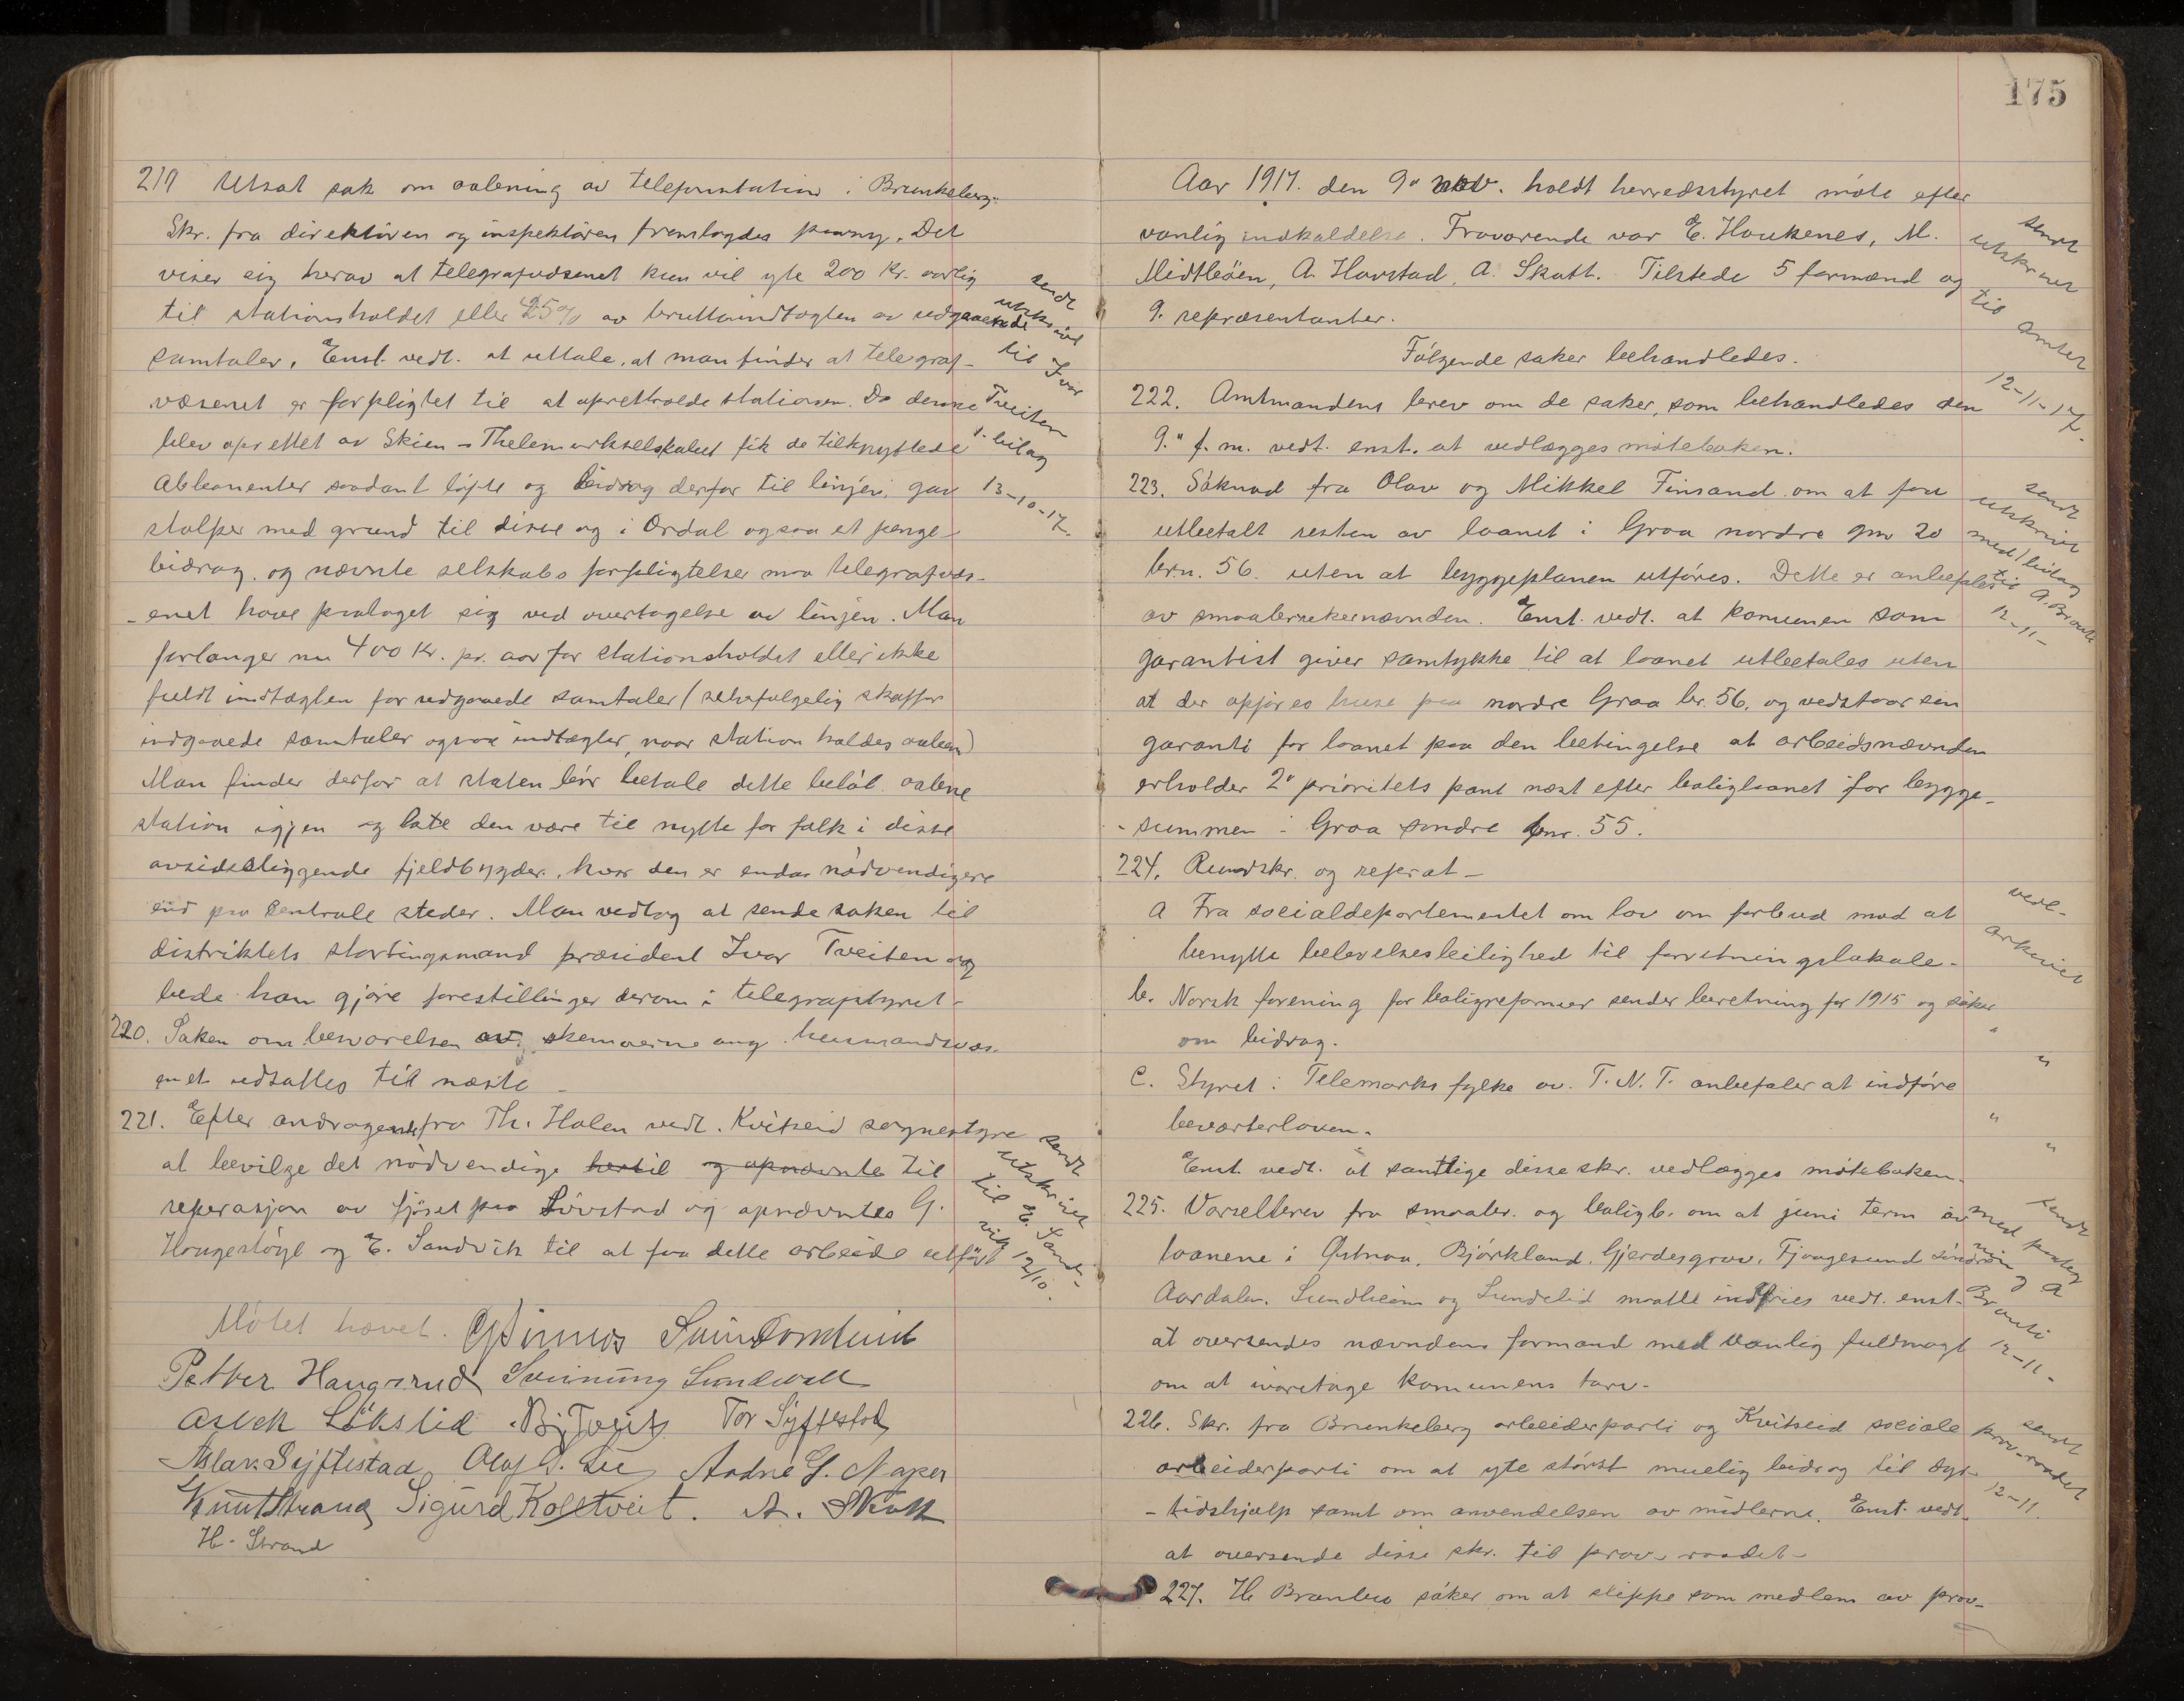 219 Utsat sak om aabning av telefonstation i Brunkeberg.
Skr. fra direktören og inspektören fremlagdes paany. Det
viser sig herav at telegrafvæsenet kun vil yte 200 kr. aarlig
til stationsholdet eller 25% av bruttoindtægten av utgaaende
samtaler. Enst. vedt. at uttale, at man finder at telegraf-
væsenet er forpligtet til at opretholde stationen. Da denne
blev oprettet av Skien-Thelemarkselskabet fik de tilknyttede
abbonenter saadant löfte og bidrog derfor til linjen, gav
stolper med grund til disse og i Ordal ogsaa et penge-
bidrag, og nævnte selskabs forpligtelser maa telegrafvæs-
-enet have paataget sig ved overtagelse av linjen. Man
forlanger nu 400 kr. pr. aar for stationsholdet eller ikke
fuldt indtægten for udgaaede samtaler (selvfølgelig skaffer
indgaaede samtaler ogsaa indtægter, naar station holdes aaben)
Man finder derfor at staten bör betale dette belöb aabne
station igjen og late den være til nytte for folk i disse
avsidesliggende fjeldbygder, hvor den er endda nödvendigere
end paa sentrale steder. Man vedtog at sende saken til
distriktets stortingsmand præsident Ivar Tveiten og
bede han gjöre forestillinger derom i telegrafstyret-
sendt
utskrivt
til Ivar
Tveiten
1. bilag
13-10-17.
220. Saken om besvarelsen av skemaerne ang. husmandsvæs-
enet udsattes til næste -
221. Efter andragende fra Th. Holen vedt. Kvitseid sognestyre
at bevilge det nödvendige hertil og opnævnte til
reperasjon av fjöset paa Lövstad og opnævntes G.
Haugestöyl og E. Sandvik til at faa dette arbeide utfört
sendt
utskrivt
til E. Sand-
vik 12/10.
Mötet hævet.
Petter Haugerud Sveinung Sundvall
Aslek Lökslid B. Tveit Tor Syftestad
Aslak Syftestad Olaf G. Lie Andne G. Naper
Knut Strand Sigurd Kolstveit. A. Skott
H. Strand
175
Aar 1917. den 9de nov. holdt herredsstyret möte efter
vanlig indkaldelse. Fraværende var E. Haukenes, M.
Midtböen, A. Havstad, A. Skott. Tilstede 5 formænd og
9. repræsentanter.
Følgende saker behandledes.
sendt
utskrivt
til
amtet
12-11-17.
222. Amtmandens brev om de saker, som behandledes den
9." f.m. vedt. enst. at vedlægges möteboken.
223. Söknad fra Olav og Mikkel Finsand om at faa
utbetalt resten av laanet i Graa nordre gnr 20
br.n. 56. uten at byggeplanen utföres. Dette er anbefalet
av smaabrukernævnden. Enst. vedt. at komunen som
garantist giver samtykke til at laanet utbetales uten
at der opföres huse paa nordre Graa br. 56, og vedstaar sin
garanti for laanet paa den betingelse at arbeidsnævnden
erholder 2" prioritets pant næst efter boliglaanet for bygge-
-summen i Graa söndre bnr. 55.
sendt
utskrivt
med 1 bilag
til A. Braute
12-11-
224. Rundskr. og referat -
a Fra socialdepartementet om lov om forbud mod at
benytte beboelsesleilighed til forretningslokale-
b. Norsk forening for boligreformer sender beretning for 1915 og söker
om bidrag.
C. Styret i Telemarks fylke av T.N.T. anbefaler at indføre
beværterloven.
Enst. vedt. at samtlige disse skr. vedlægges möteboken.
vedl-
arkivet
" "
" "
225. Varselbrev fra smaabr. og boligb. om at juni term av
laanene i Østnaa, Björkland, Gjerdesgrav, Fjaagesund söndre,
Aardalen, Sundheim og Sundelid maatte indfries vedt. enst-
at oversendes nævndens formand med vanlig fuldmagt
om at ivaretage komunens tarv-
226. Skr. fra Brunkeberg arbeiderparti og Kvitseid sociale
arbeiderparti om at yte störst muelig bidrag til dyr-
-tidshjælp samt om anvendelsen av midlerne. Enst. vedt.
at oversende disse skr. til prov-raadet-
sendt
prov-raadet
12-11.
227. H. Brænbu söker om at slippe som medlem av prov-